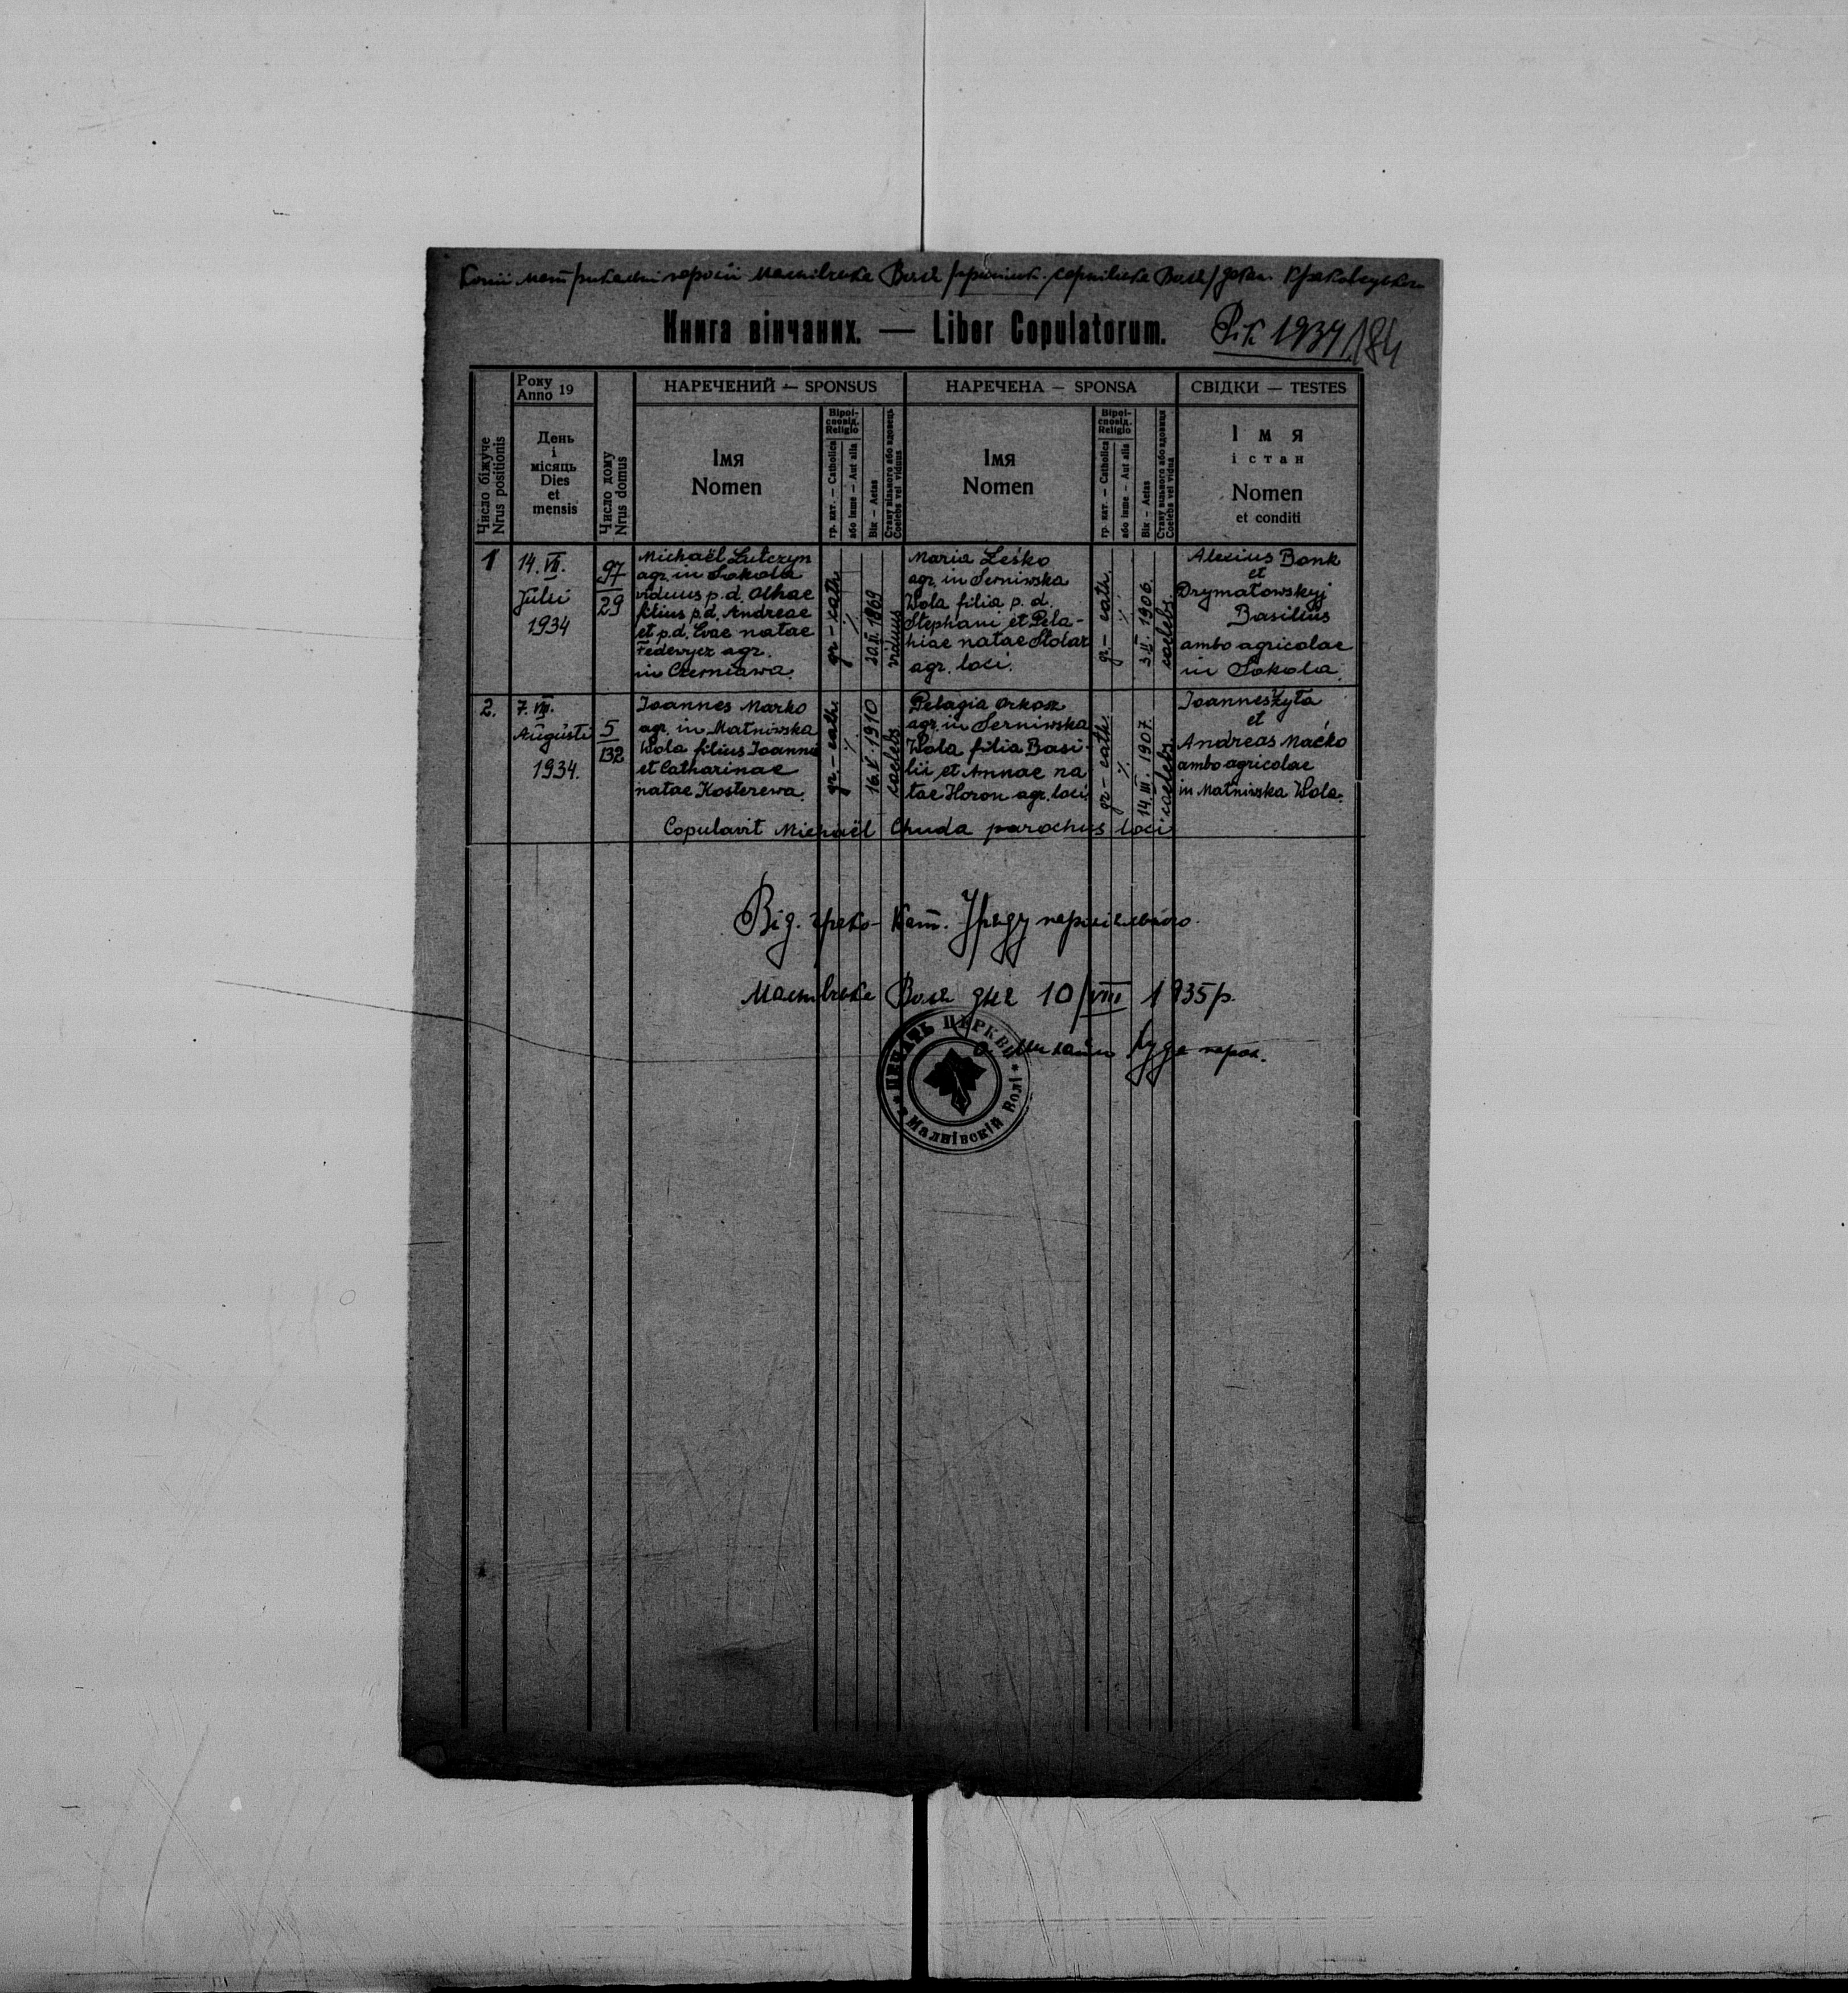 Копії метрикальні парохії Малнівська Воля /прилуч. Сернівська Воля/ декан. Краковецького
Книга вінчаних. — Liber Copulatorum. Рік 1934 184
Року
Anno 19
НАРЕЧЕНИЙ — SPONSUS
НАРЕЧЕНА — SPONSA
СВІДКИ — TESTES
Число біжуче
Nrus positionis
День
і
місяць
Dies
et
mensis
Число дому
Nrus domus
Імя
Nomen
Віроі-
сповід.
Religio
гр. кат. — Catholica
або інше — Aut alia
Вік — Aetas
Стану вільного або вдовець
Coelebs vel viduus
Імя
Nomen
Віроі-
сповід.
Religio
гр. кат. — Catholica
або інше — Aut alia
Вік — Aetas
Стану вільного або вдовиця
Coelebs vel vidua
Імя
і стан
Nomen
et conditi
1
14. VII.
Julii
1934
97
29
Michaël Lutczyn
agr. in Sokola
viduus p.d. Olhae
filius p.d. Andreae
et p.d. Evae natae
Fedewycz agr.
in Czerniawa.
gr-cath.
⁒
20.II.1869
viduus
Maria Leśko
agr. in Serniwska
Wola filia p. d.
Stephani et Pela-
hiae natae Stolar
agr. loci.
gr-cath.
⁒
1906.
caelebs.
Alexius Bonk
et
Drymałowskyj
Basilius
ambo agricolae
in Sokola.
2.
7. VIII.
Augusti
1934.
5
132
Joannes Marko
agr. in Małniwska
Wola filius Joannis
et Catharinae
natae Kosterewa.
gr.-cath.
⁒
16.V.1910
caelebs.
Pelagia Orkosz
agr. in Serniwska
Wola filia Basi-
lii et Annae na
tae Horon agr. loci
gr-cath.
⁒
14.III.1907.
caelebs.
Joannes Żyła
et
Andreas Maćko
ambo agricolae
in Małniwska Wola.
Copulavit Michaël Chuda parochus loci
Від греко-кат. Уряду парохіяльного.
Малнівська Воля дня 10/VIII 1935 р.
о. Михайло Худа парох.
ПЕЧАТЬ ЦЕРКВИ
в Малнівскій Волі